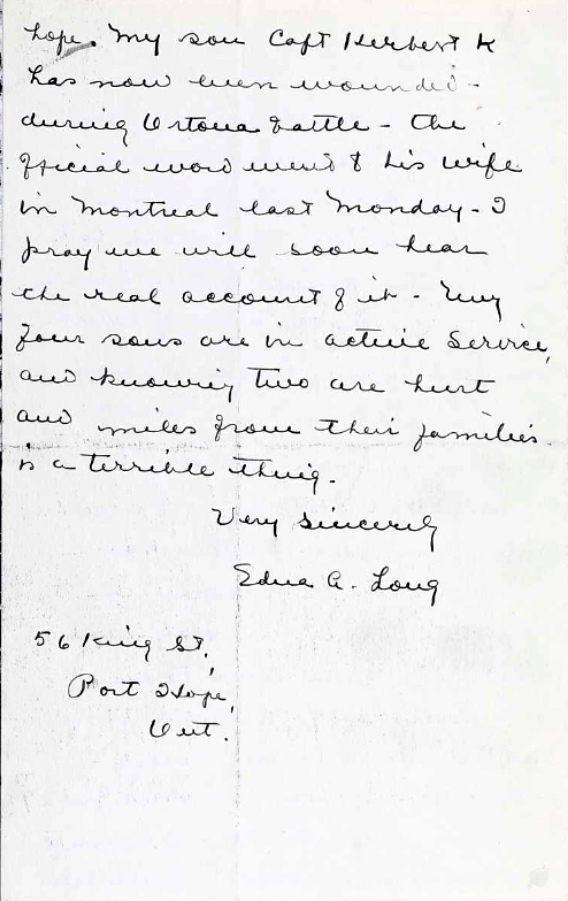 hope. My son Capt Herbert K
has now been wounded -
during Ortona battle - the
official word went to his wife
in Montreal last Monday - I
pray we will soon hear
the real account of it - My
four sons are in active Service,
and knowing two are hurt
and miles from their families
is a terrible thing.
Very sincerely
Edna A. Long
56 King St,
Port Hope,
Ont.